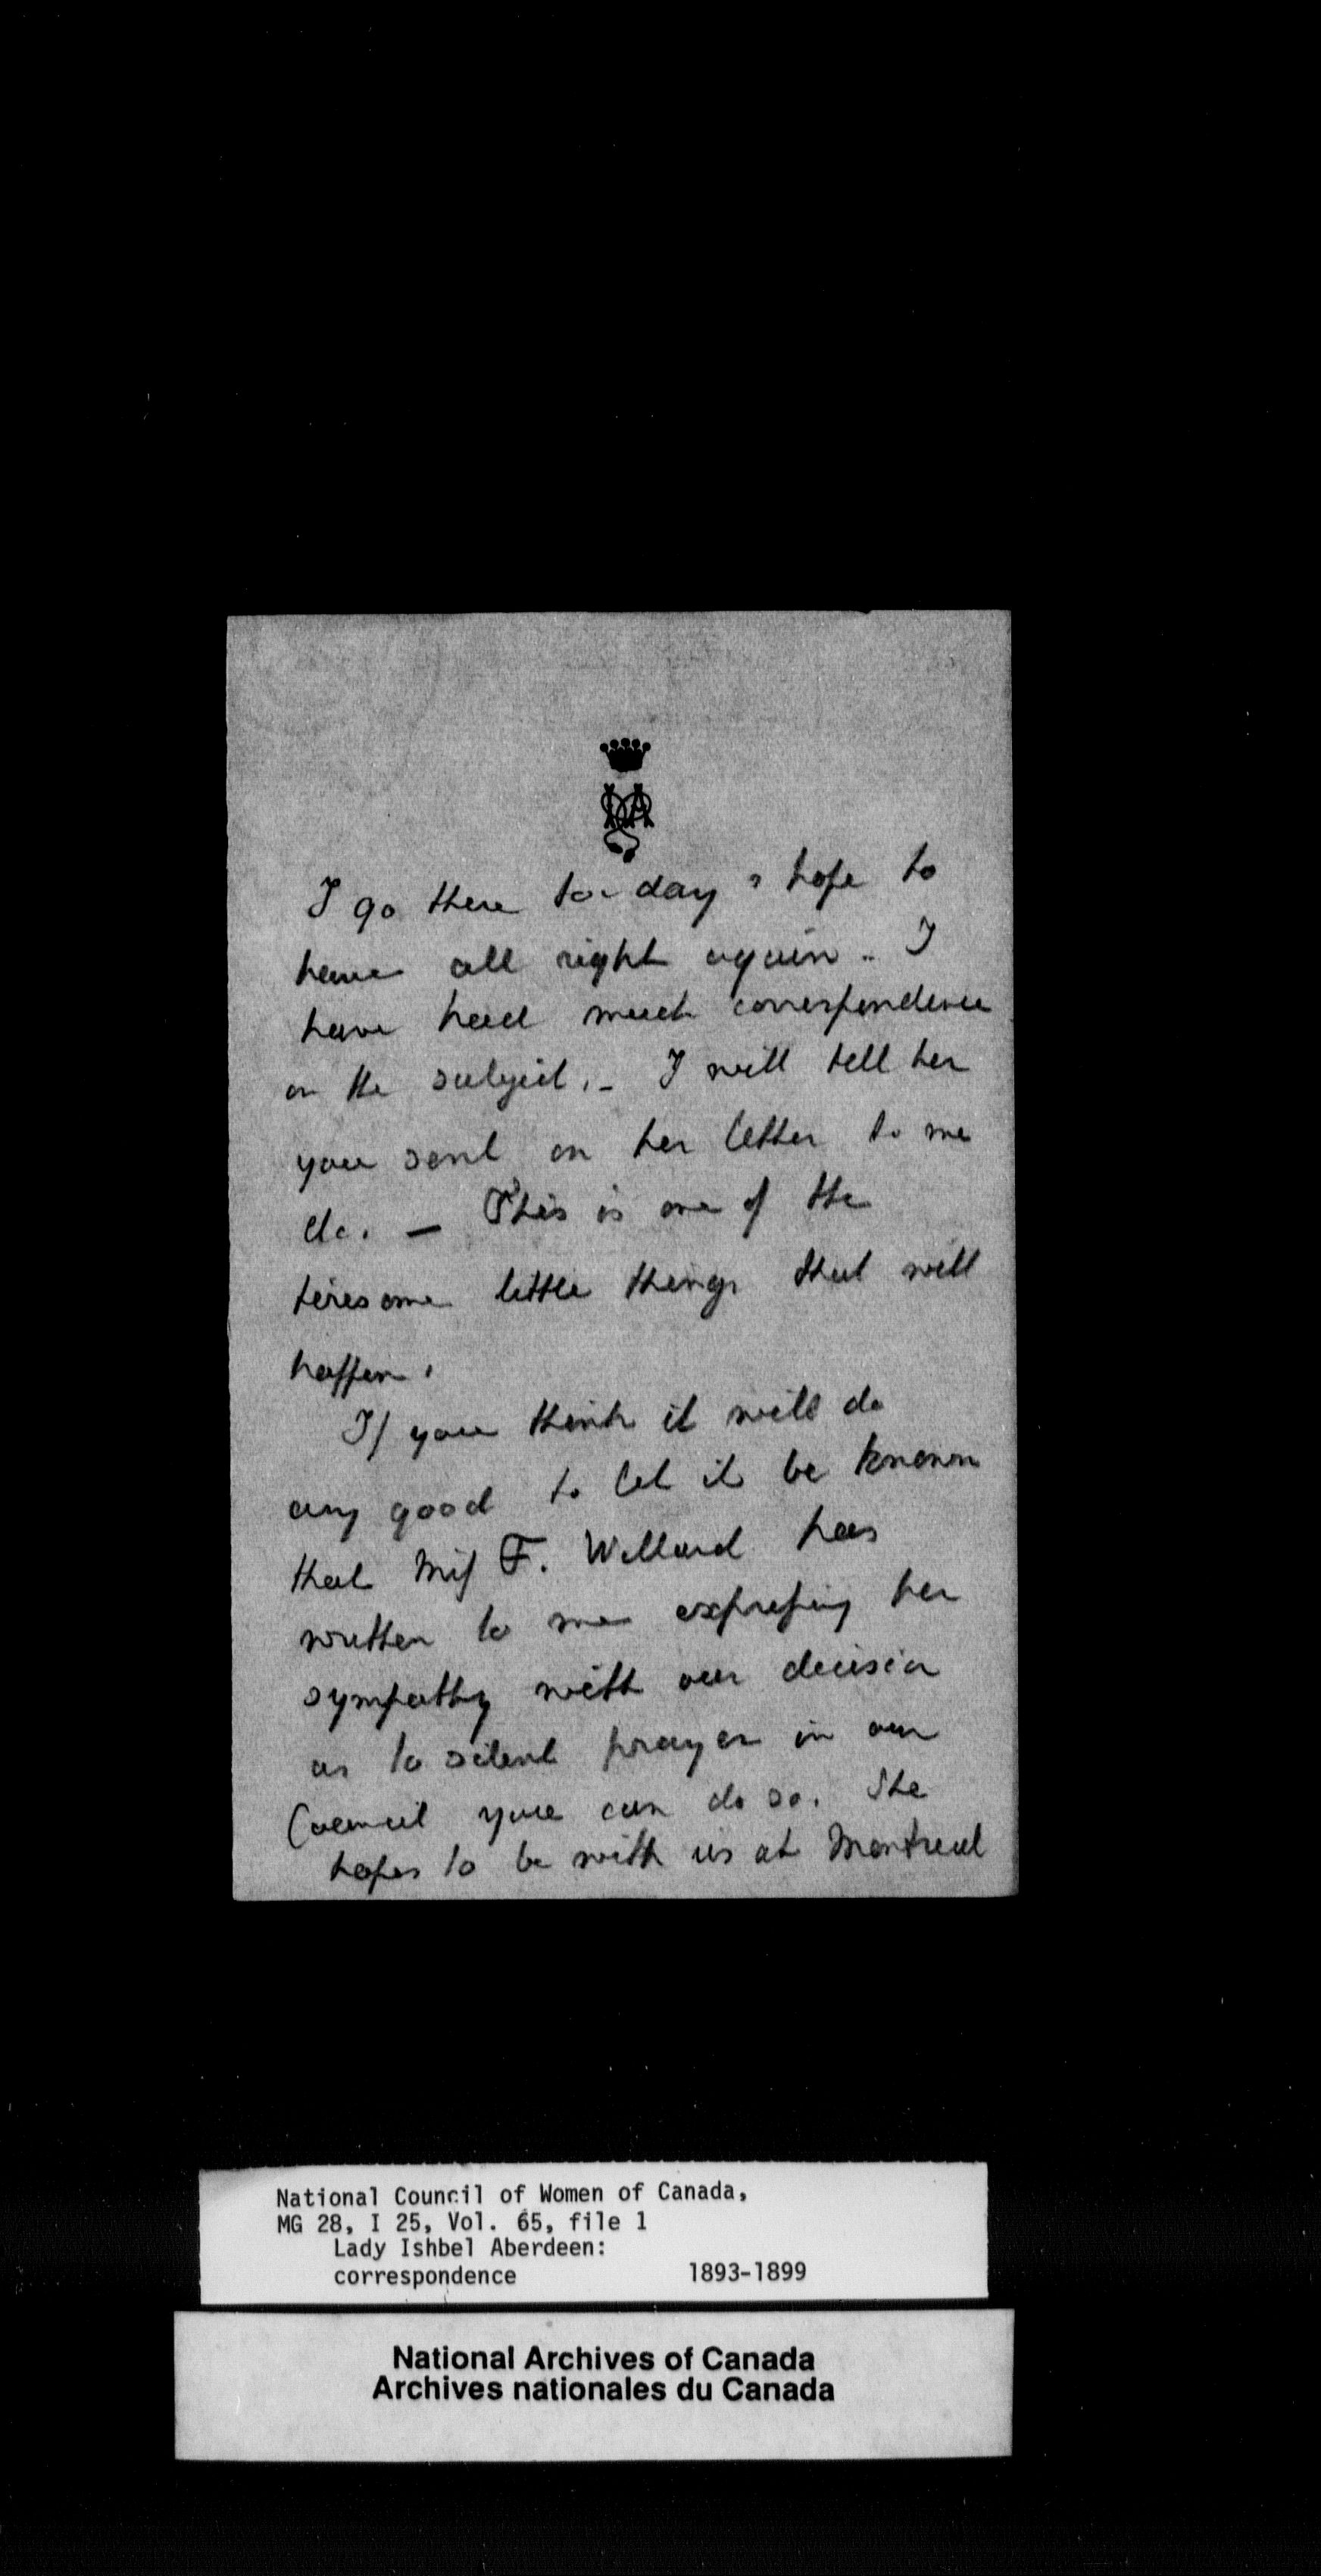 I go there to-day & hope to
have all right again.. I
have had much correspondence
on the subject. - I will tell her
you sent on her letter to me
etc. — This is one of the
tiresome little things that will
happen.
If you think it will do
any good to let it be known
that Miss F. Willard has
written to me expressing her
sympathy with our decision
as to silent prayer in our
Council you can do so. She
hopes to be with us at Montreal
National Council of Women of Canada,
MG 28, I 25, Vol. 65, file 1
Lady Ishbel Aberdeen:
correspondence 1893-1899
National Archives of Canada
Archives nationales du Canada